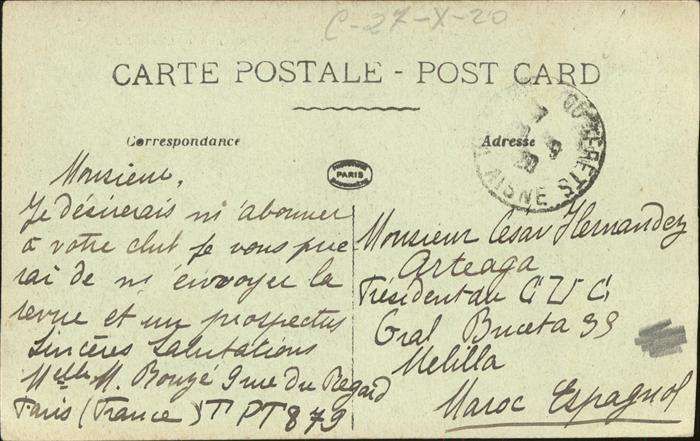 C-27-X-20
CARTE POSTALE - POST CARD
Correspondance
Adresse
PARIS
AISNE
Monsieur,
Je désirerais m'abonner
à votre club je vous prie
rai de m'envoyer la
revue et un prospectus
Sincères Salutations
Melle M. Bouzé 9 rue Du Regard
Paris (France) TPT 879
Monsieur Cesar Hernandez
Arteaga
Président du C U C
Gral Buceta 33
Melilla
Maroc Espagnol